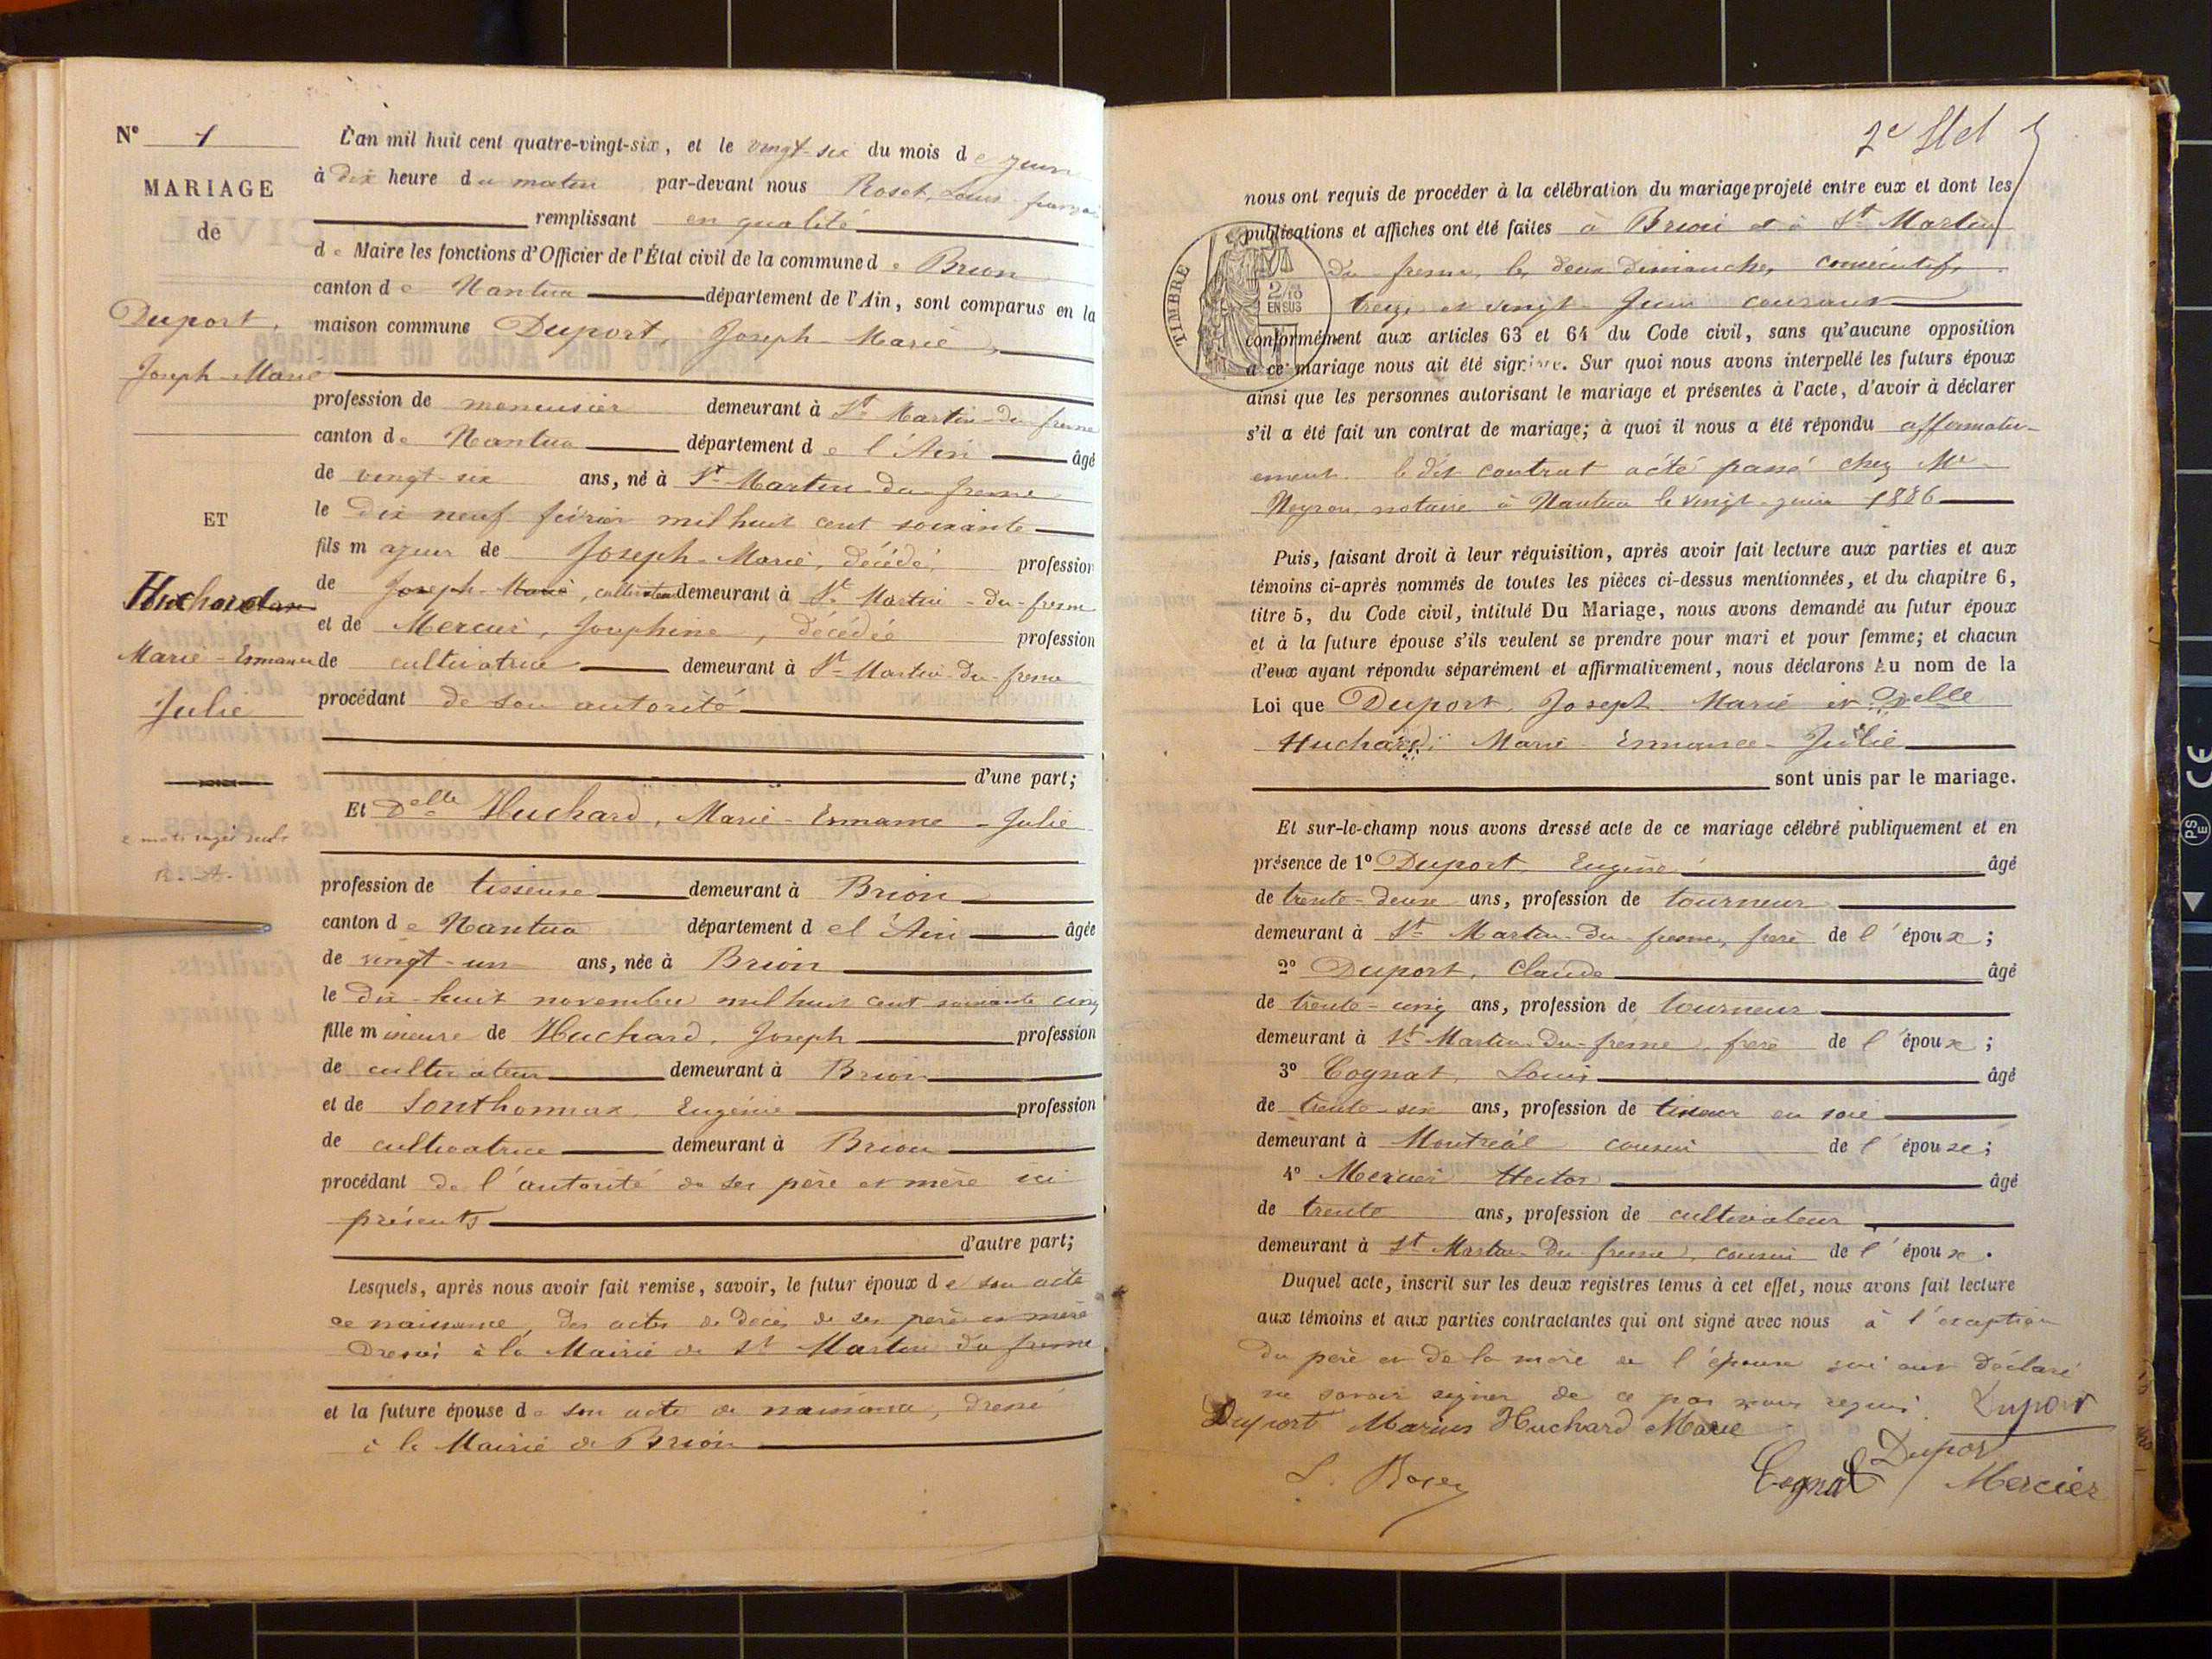 N° 1
MARIAGE
de
Duport,
Joseph-Marie
ET
Huchard
Marie-Ermance
Julie
2 mots rayés nuls
L'an mil huit cent quatre-vingt-six, et le vingt-six du mois de juin
à dix heure du matin par-devant nous Roset, Louis
remplissant en qualité
de Maire les fonctions d'Officier de l'État civil de la commune de Brion
canton de Nantua département de l'Ain, sont comparus en la
maison commune Duport, Joseph-Marie,
profession de menuisier demeurant à St Martin-du-fresne
canton de Nantua département de l'Ain âgé
de vingt-six ans, né à St Martin-du-fresne
le dix neuf février mil huit cent soixante
fils majeur de Joseph-Marie, décédé, profession
de Joseph-Marie, cultivateur demeurant à St Martin-du-fresne
et de Mercier, Josephine, décédée profession
de cultivatrice demeurant à St Martin-du-fresne
procédant de son autorité
d'une part;
Et Delle Huchard, Marie-Ermance-Julie
profession de tisseuse demeurant à Brion
canton de Nantua département de l'Ain âgée
de vingt-un ans, née à Brion
le dix-huit novembre mil huit cent soixante cinq
fille mineure de Huchard, Joseph profession
de cultivateur demeurant à Brion
et de Sonthonnax Eugénie profession
de cultivatrice demeurant à Brion
procédant de l'autorité de ses père et mère ici
présents
d'autre part;
Lesquels, après nous avoir fait remise, savoir, le futur époux de son acte
de naissance, des actes de décès de ses père et mère
dressés à la Mairie de St Martin du fresne
et la future épouse de son acte de naissance, dressé
à la Mairie de Brion
2e
nous ont requis de procéder à la célébration du mariage projeté entre eux et dont les
publications et affiches ont été faites à Brion et à St Martin
du-fresne, les deux dimanches consécutifs
treize et vingt Juin courant
TIMBRE
2/10
EN SUS
conformément aux articles 63 et 64 du Code civil, sans qu'aucune opposition
à ce mariage nous ait été signifiée. Sur quoi nous avons interpellé les futurs époux
ainsi que les personnes autorisant le mariage et présentes à l'acte, d'avoir à déclarer
s'il a été fait un contrat de mariage; à quoi il nous a été répondu affirmativ-
ement. le dit contrat a été passé chez Me
Neyron notaire à Nantua le vingt-juin 1886
Puis, faisant droit à leur réquisition, après avoir fait lecture aux parties et aux
témoins ci-après nommés de toutes les pièces ci-dessus mentionnées, et du chapitre 6,
titre 5, du Code civil, intitulé Du Mariage, nous avons demandé au futur époux
et à la future épouse s'ils veulent se prendre pour mari et pour femme; et chacun
d'eux ayant répondu séparément et affirmativement, nous déclarons Au nom de la
Loi que Duport, Joseph-Marie et Delle
Huchard Marie-Ermance-Julie
sont unis par le mariage.
Et sur-le-champ nous avons dressé acte de ce mariage célébré publiquement et en
présence de 1° Duport, Eugène âgé
de trente-deux ans, profession de tourneur
demeurant à St Martin-du-fresne, frère de l'époux;
2° Duport, Claude âgé
de trente-cinq ans, profession de tourneur
demeurant à St Martin-du-fresne, frère de l'époux;
3° Cognat, Louis âgé
de trente-six ans, profession de tisseur en soie
demeurant à Montréal cousin de l'épouse;
4° Mercier Hector âgé
de trente ans, profession de cultivateur
demeurant à St Martin-du-fresne, cousin de l'époux.
Duquel acte, inscrit sur les deux registres tenus à cet effet, nous avons fait lecture
aux témoins et aux parties contractantes qui ont signé avec nous à l'exception
du père et de la mère de l'épouse qui ont déclaré
ne savoir signer de ce par nous requis. Duport
Duport Marius Huchard Marie
Duport
L. Roset Cognat Mercier